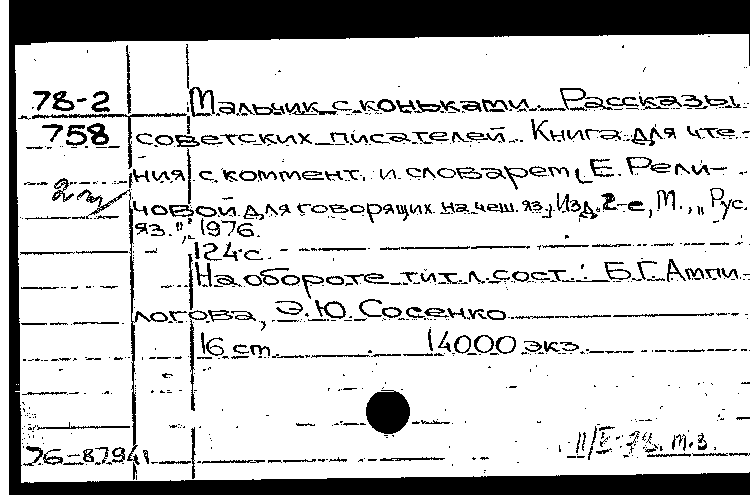 78-2 Мальчик с коньками. Рассказы
758 советских писателей. Книга для чте-
ния с коммент. и словарем Е. Рели-
2 эк
човой для говорящих на чеш. яз., Изд. 2-е, М., „Рус.
яз.", 1976.
124 с.
На обороте тит. л. сост.: Б.Г. Ампи-
логова, Э.Ю. Сосенко
16 ст. 14000 экз.
76-87941 11/V-78. т.з.